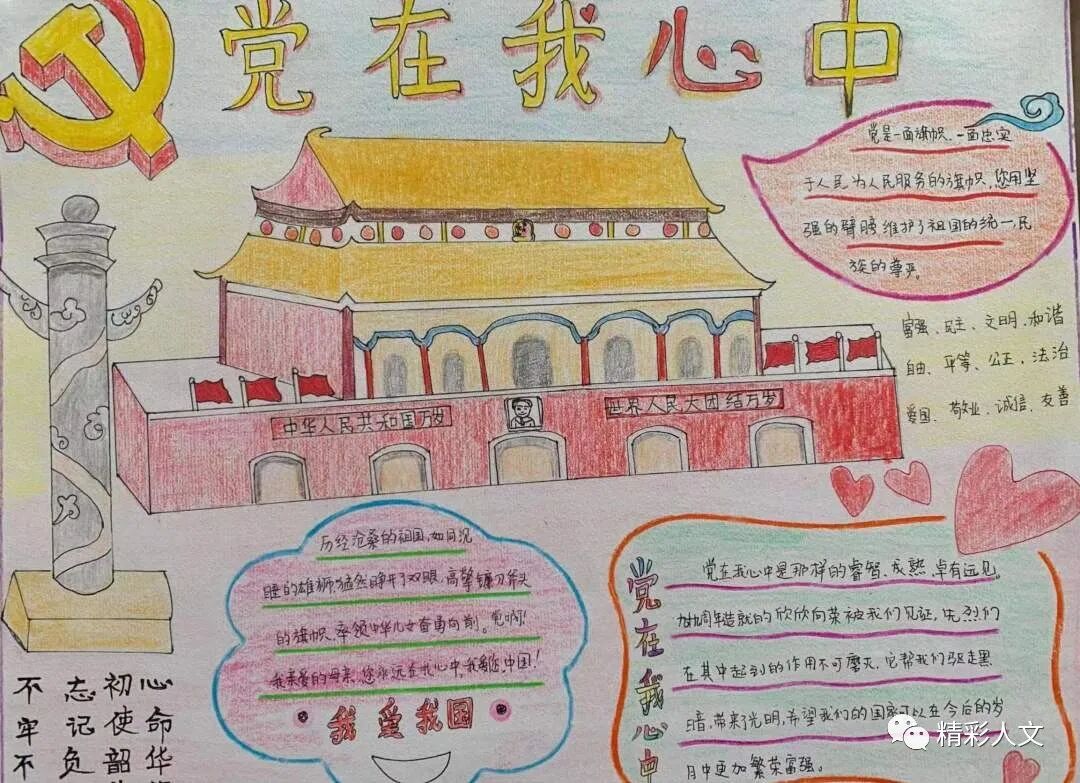 党在我心中
党是一面旗帜、一面忠实
于人民为人民服务的旗帜,您用坚
强的臂膀维护了祖国的统一,民
族的尊严。
富强、民主、文明、和谐
自由、平等、公正、法治
爱国、敬业、诚信、友善
中华人民共和国万岁
世界人民大团结万岁
历经沧桑的祖国,如同沉
睡的雄狮,猛然睁开了双眼,高擎镰刀斧头
的旗帜,率领中华儿女奋勇向前。党啊!
我亲爱的母亲,您永远在我心中,我爱您,中国!
我爱我国
党在我心中
党在我心中是那样的睿智、成熟、卓有远见。
周年造就的欣欣向荣被我们见证,先烈们
在其中起到的作用不可磨灭,它帮我们驱走黑
暗,带来了光明,希望我们的国家可以在今后的岁
月中更加繁荣富强。
不忘初心
牢记使命
不负韶华
精彩人文